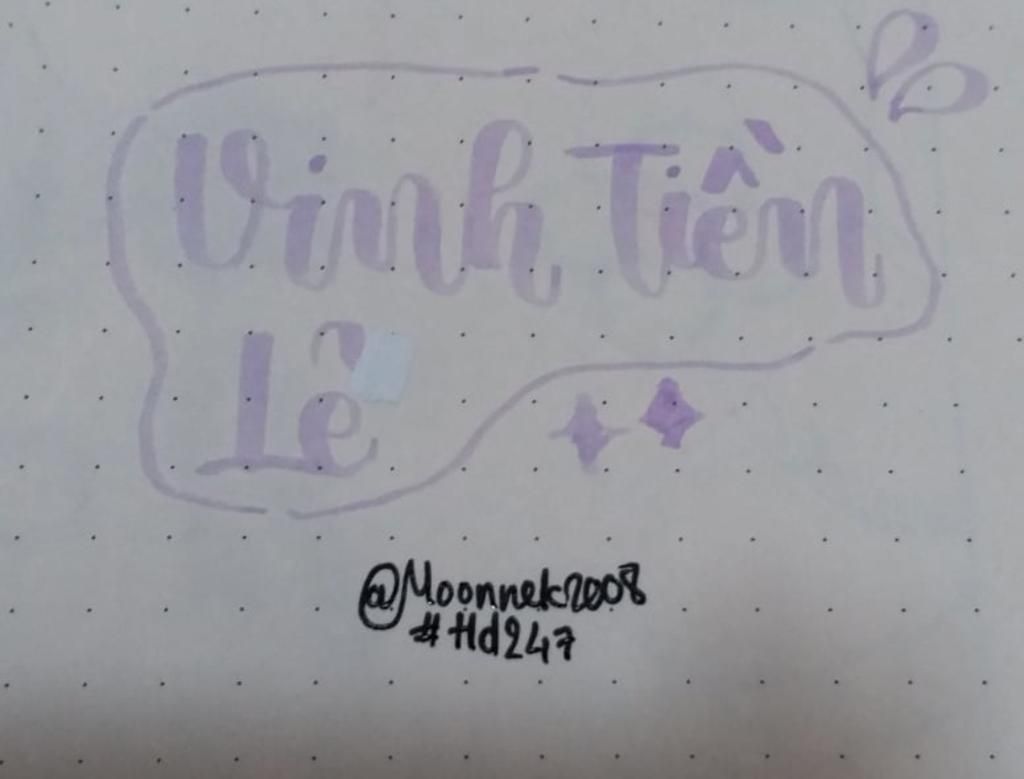 Vinh Tiền
Lẻ
@Moonnek2008
#Hd247